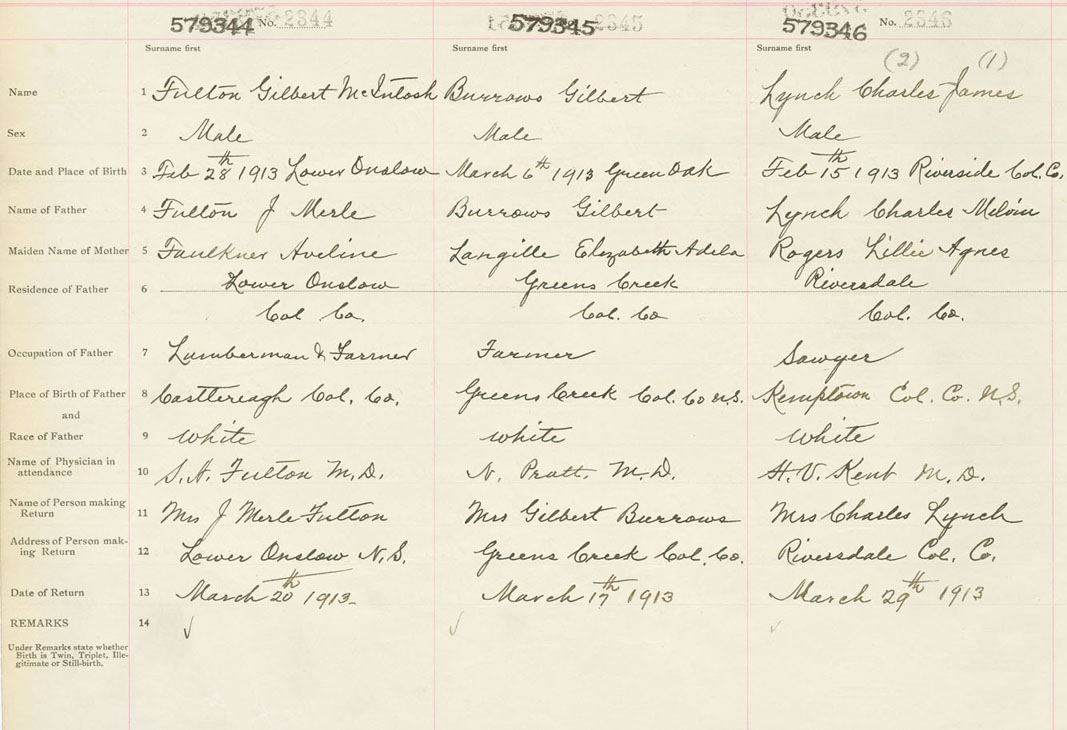 579344 No. 2344 579345 2345 579346 No. 2346
Surname first Surname first Surname first
(2) (1)
Name 1 Fulton Gilbert McIntosh Burrows Gilbert Lynch Charles James
Sex 2 Male Male Male
Date and Place of Birth 3 Feb 28th 1913 Lower Onslow March 6th 1913 Green Oak Feb 15th 1913 Riverside Col. Co.
Name of Father 4 Fulton J Merle Burrows Gilbert Lynch Charles Melvin
Maiden Name of Mother 5 Faulkner Aveline Langille Elizabeth Adela Rogers Lillie Agnes
Residence of Father 6 Lower Onslow Greens Creek Riversdale
Col Co. Col. Co Col. Co.
Occupation of Father 7 Lumberman & Farmer Farmer Sawyer
Place of Birth of Father 8 Castlereagh Col. Co. Greens Creek Col. Co N.S. Kemptown Col. Co. N.S.
and
Race of Father 9 White White White
Name of Physician in
attendance 10 S. H. Fulton M.D. N. Pratt. M.D. H. V. Kent M.D.
Name of Person making
Return 11 Mrs J Merle Fulton Mrs Gilbert Burrows Mrs Charles Lynch
Address of Person mak-
ing Return 12 Lower Onslow N.S. Greens Creek Col. Co. Riversdale Col. Co.
Date of Return 13 March 20th 1913 March 17th 1913 March 29th 1913
REMARKS 14
Under Remarks state whether
Birth is Twin, Triplet, Ille-
gitimate or Still-birth.